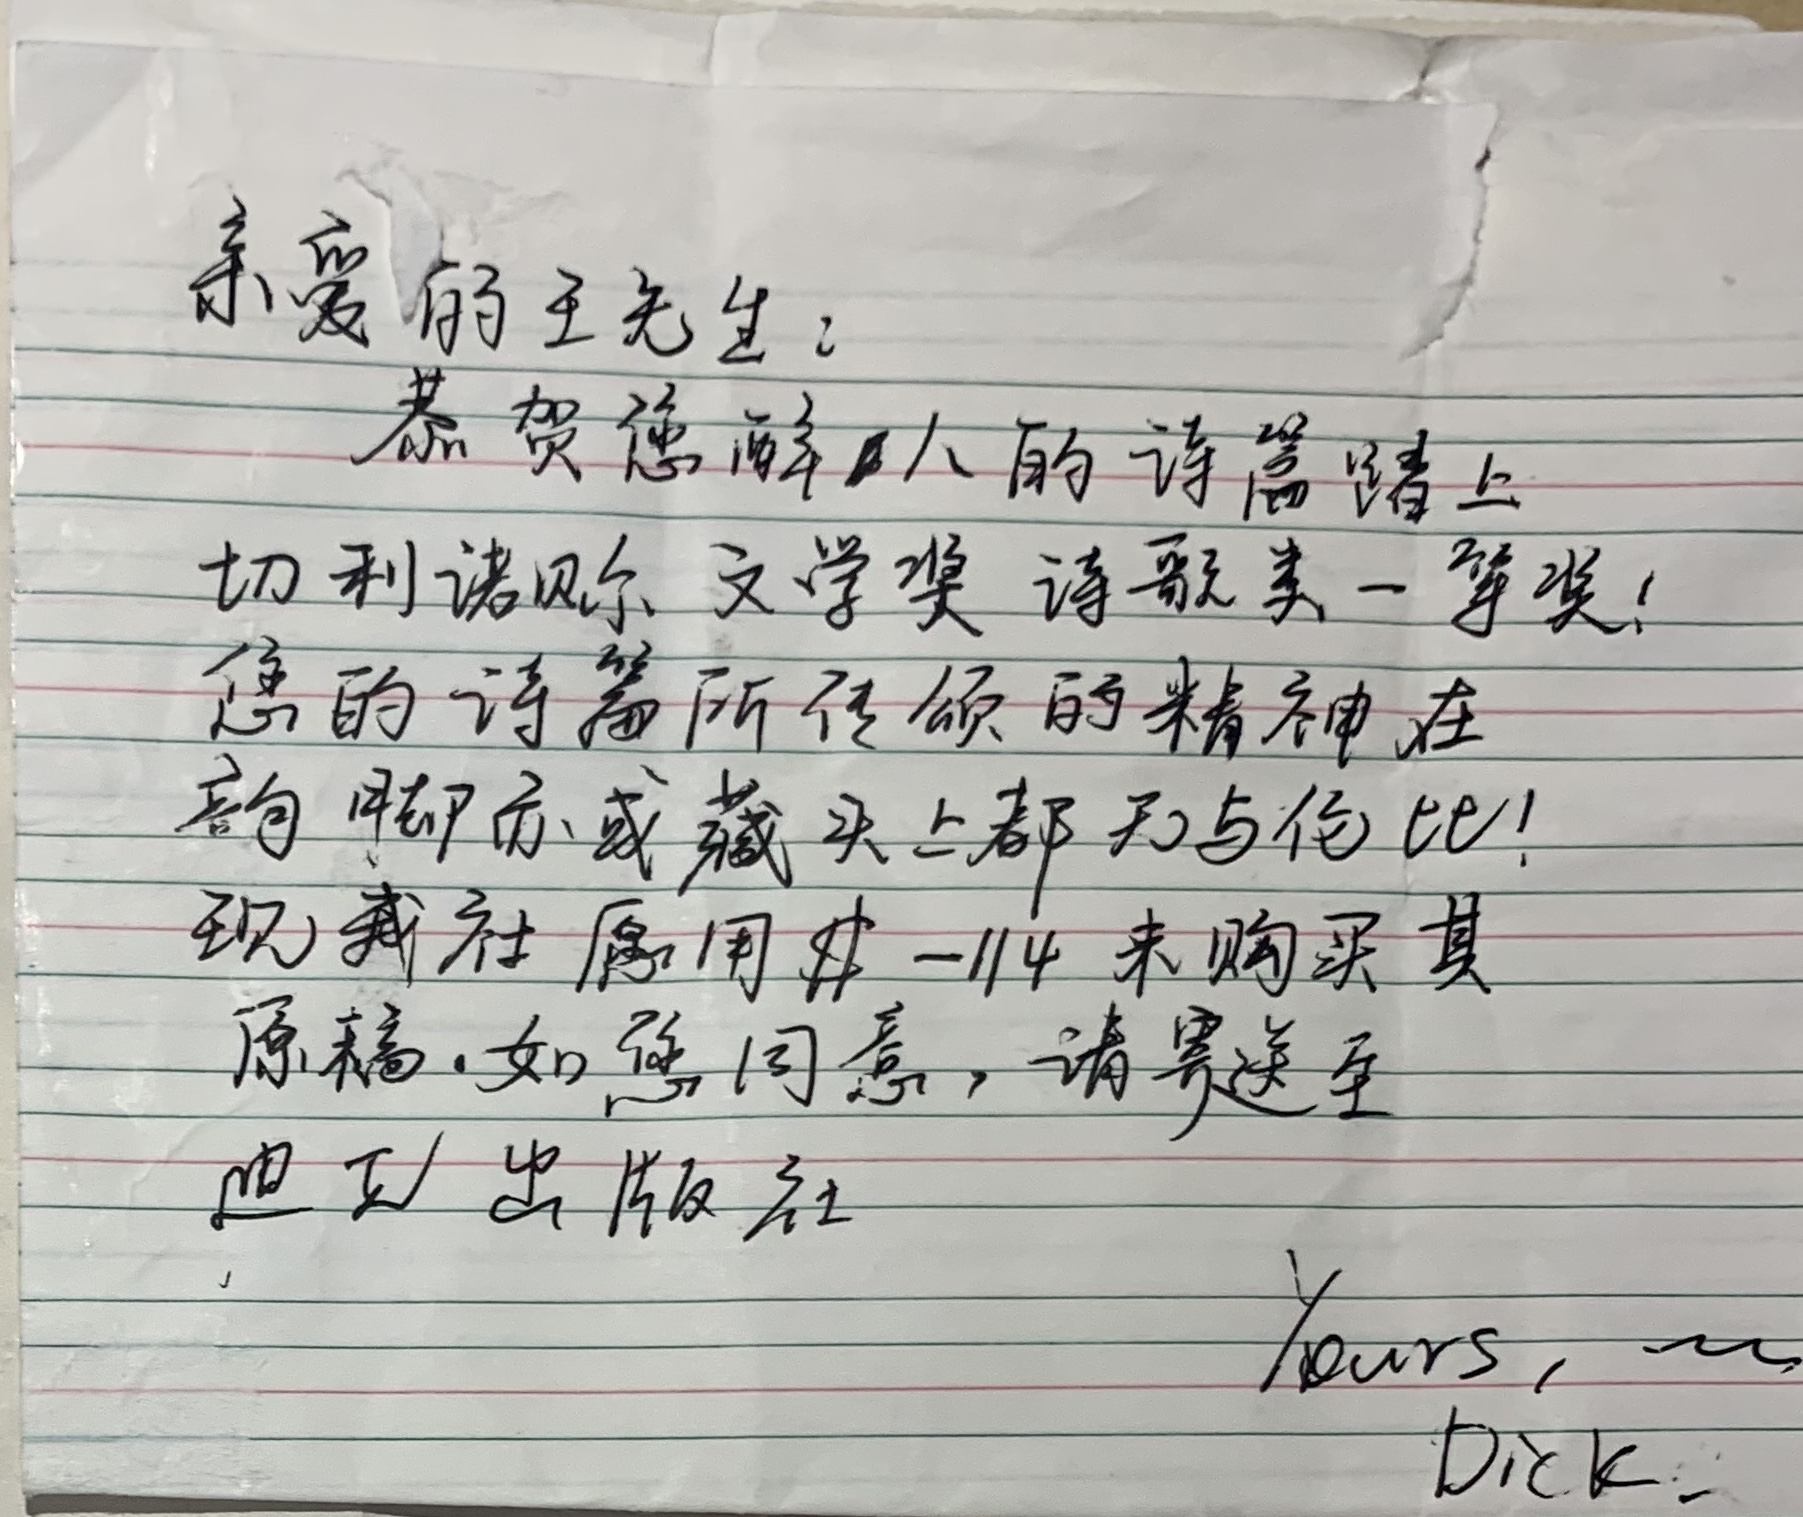 亲爱的王先生：
恭贺您醉人的诗篇踏上
切利诺贝尔文学奖 诗歌类一等奖！
您的诗篇所传颂的精神在
韵脚亦或藏头上都无与伦比！
现我社愿用$-114来购买其
原稿．如您同意，请寄送至
迪克出版社
Yours, ~~
Dick.